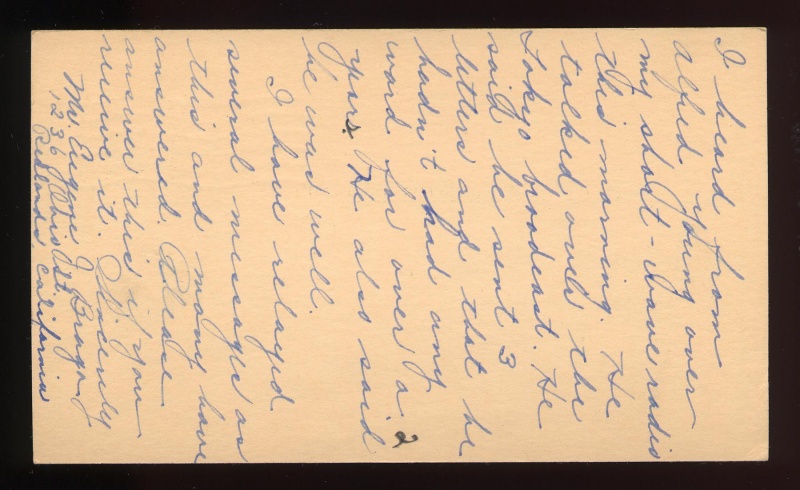 I heard from
Alfred Young over
my short-wave radio
this morning. He
talked over the
Tokyo broodcast. He
said he sent 3
letters and that he
hadn't had any
word for over a 2
years. He also said
he was well.
I have relayed
several messages as
this and many have
answered. Please
answer this if you
receive it. Sincerely
Mr. Eugene J. Bragg
1236 Ohio St.
Redlands, California